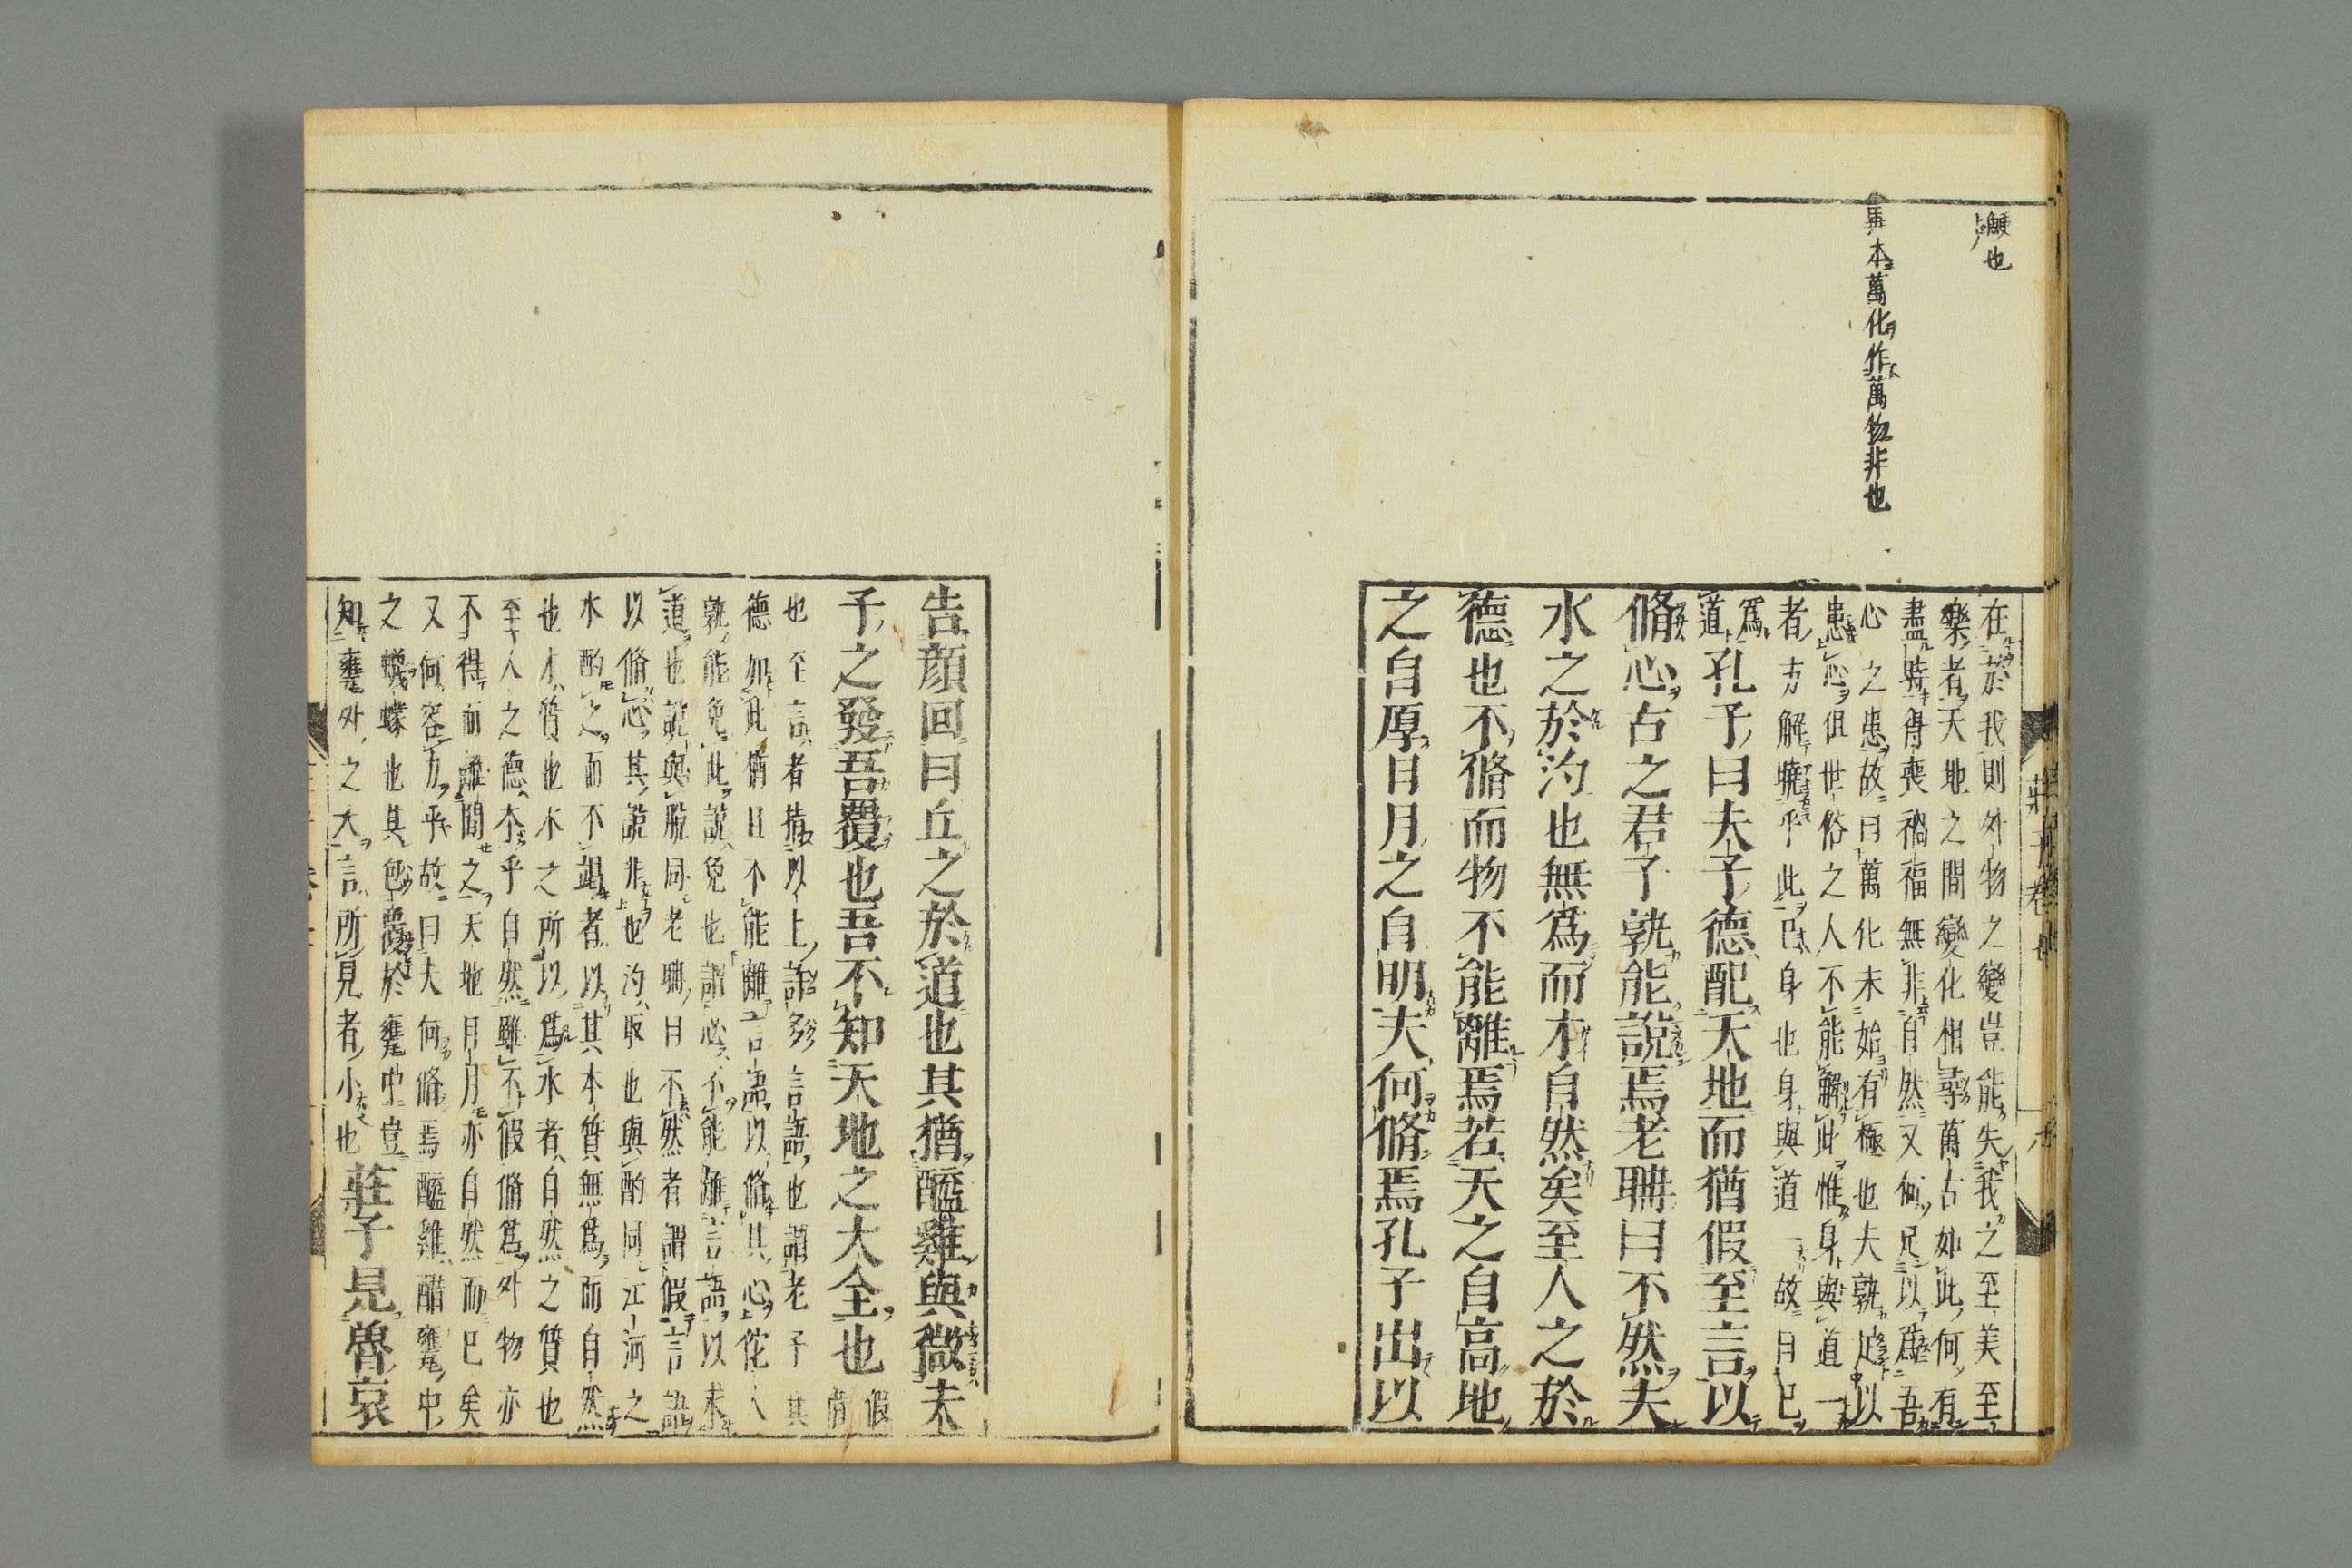 觸也
再本萬化作萬物非也
在於我則外物之變豈能失我之至美至
樂者天地之間變化相尋萬古如此何有
盡時得喪禍福無非自然又何足以爲吾
心之患故曰萬化未始有極也夫孰足以
患心但世俗之人不能解此惟身與道一
者方解曉乎此已身也身與道一故曰已
爲道
孔子曰夫子德配天地而猶假至言以
脩心古之君子孰能說焉老聃曰不然夫
水之於汋也無爲而才自然矣至人之於
德也不脩而物不能離焉若天之自高地
之自厚日月之自明夫何脩焉孔子出以
莊子 卷七
告顏回曰丘之於道也其猶醯雞與微夫
子之發吾覆也吾不知天地之大全也
假
借
也至言者猶以上許多言語也謂老子其
德如此猶且不能離言語以脩其心佗人
孰能免此說免也謂必不能離言語以求
道也說與脫同老聃曰不然者謂假言語
以脩心其說非也汋取也與酌同江河之
水酌之而不竭者以其本質無爲而自然
也才質也水之所以爲水者自然之質也
至人之德本乎自然雖不假脩爲外物亦
不得而離間之天地日月亦自然而已矣
又何容力乎故曰夫何脩焉醯雞醋甕中
之蠛蠓也其包覆於甕中豈
知甕外之大言所見者小也
莊子見魯哀